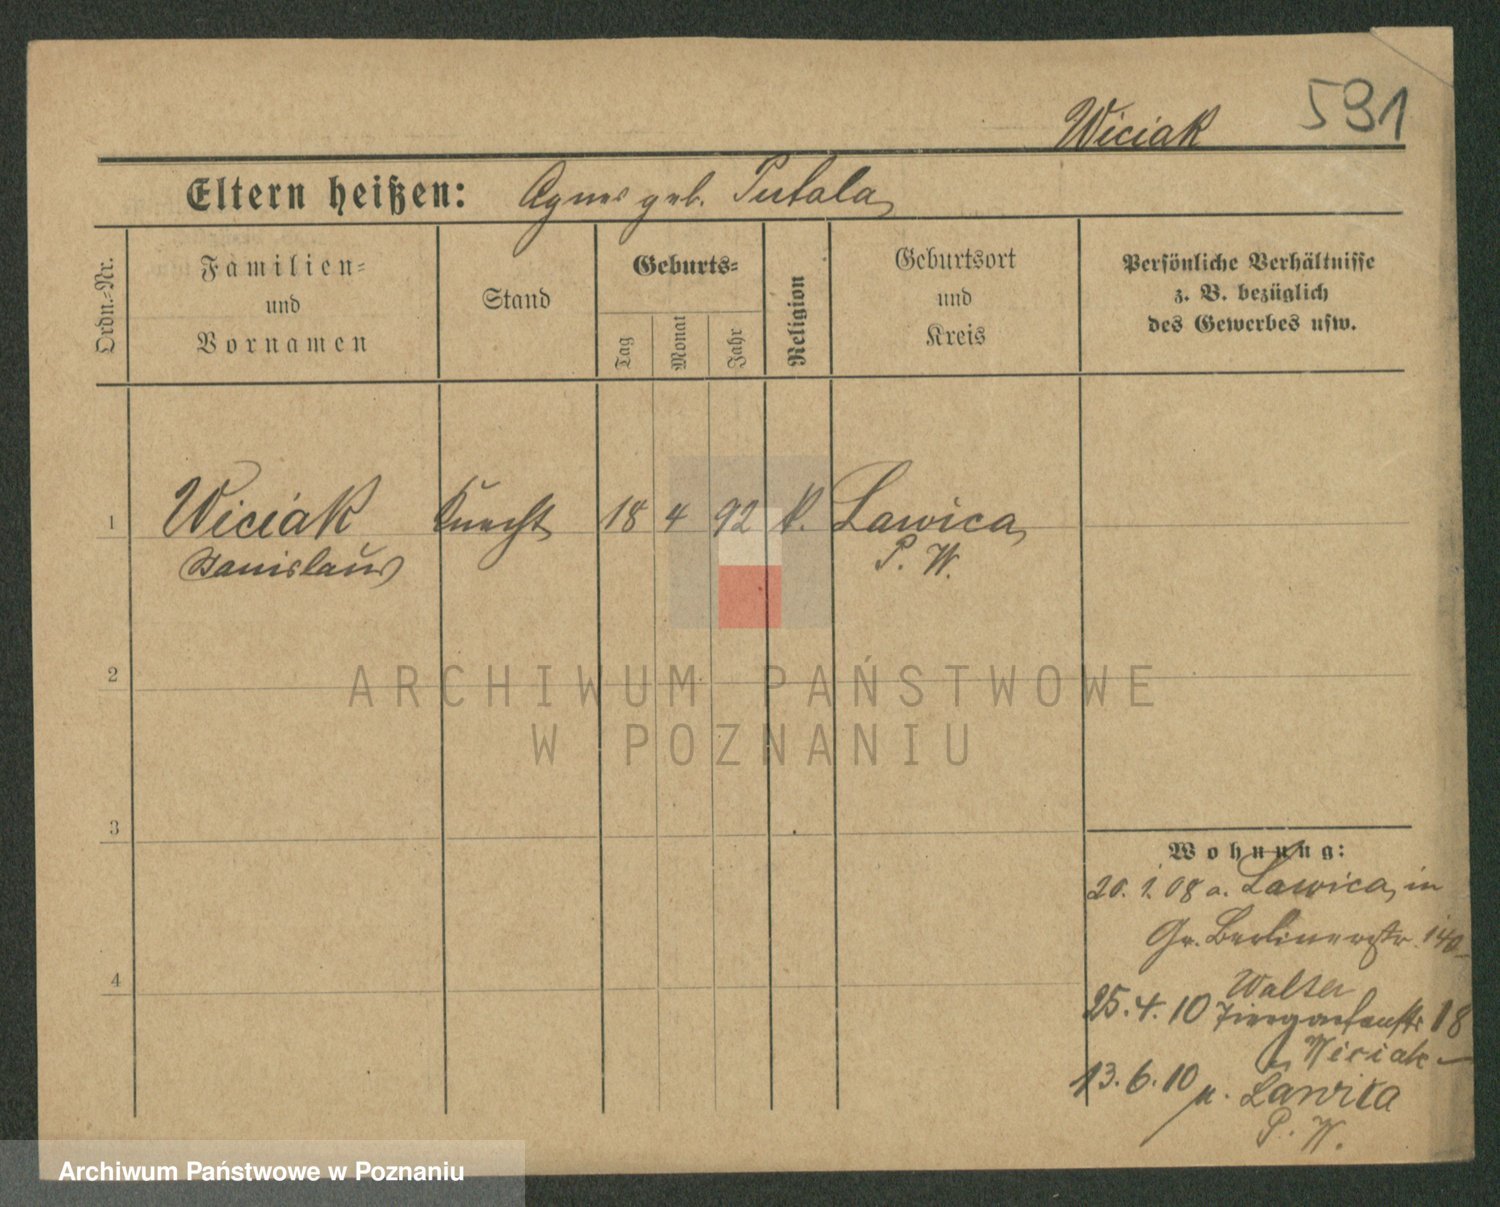 Wiciak 591
Eltern heißen: Agnes geb. Putala
Ordn.-Nr.
Familien-
und
Vornamen
Stand
Geburts-
Tag
Monat
Jahr
Religion
Geburtsort
und
Kreis
Persönliche Verhältnisse
z. B. bezüglich
des Gewerbes usw.
1 Wiciak Knecht 18 4 92 k. Lawica,
Stanislaus P. W.
2
ARCHIWUM PAŃSTWOWE
W POZNANIU
3
Wohnung:
20. 1. 08 a. Lawica, in
Gr. Berlinerstr. 140
Walter
25.4.10 Tiergartenstr 18
Wiciak
13.6.10 n. Lawica
P. W.
4
Archiwum Państwowe w Poznaniu